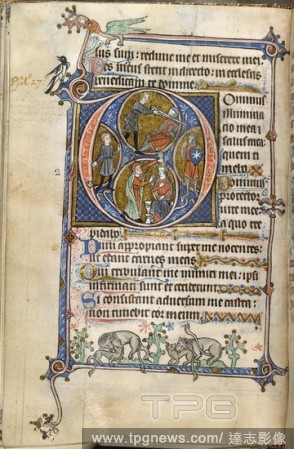 sus sum: redime me et miserere mei.
Pes meus stetit in directo: in ecclesiis
benedicam te domine.
Psal. 27.
Dominus
illumina
mea et
salus mea
quem ti
mebo
Dominus
protector
vite mee
a quo tre
pidabo
Dum appropiant super me nocentes
ut edant carnes meas
Qui tribulant me inimici mei: ipsi
infirmati sunt et ceciderunt
Si consistant adversum me castra:
non timebit cor meum
TPG
www.tpgnews.com/達志影像